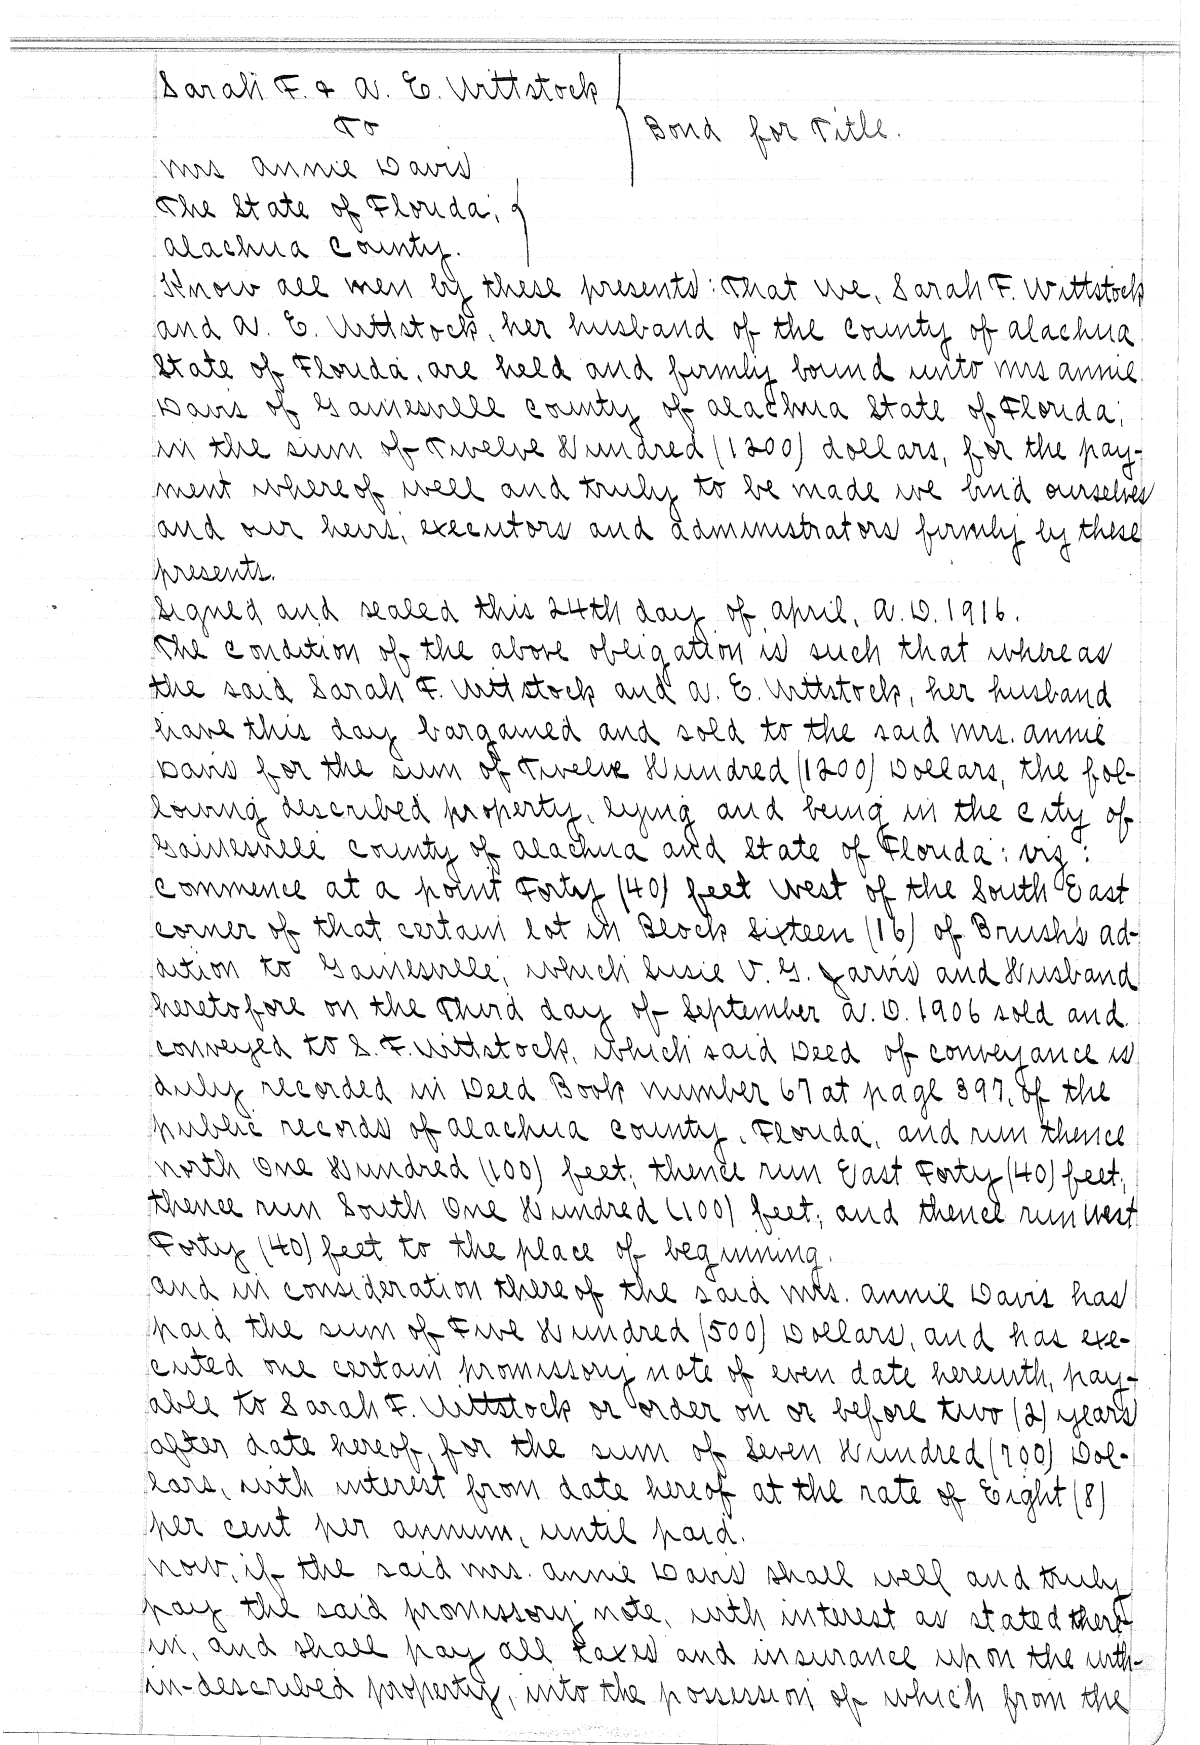 Sarah F. & A. E. Wittstock
To
Bond for Title.
Mrs Annie Davis
The State of Florida,
Alachua County.
Know all men by these presents: That we, Sarah F. Wittstock
and A. E. Wittstock, her husband of the County of Alachua
State of Florida, are held and firmly bound unto Mrs Annie
Davis of Gainesville County of Alachua State of Florida,
in the sum of Twelve Hundred (1200) dollars, for the pay-
ment whereof well and truly to be made we bind ourselves
and our heirs, executors and administrators firmly by these
presents.
Signed and sealed this 24th day of April, A.D. 1916.
The condition of the above obligation is such that whereas
the said Sarah F. Wittstock and A. E. Wittstock, her husband
have this day bargained and sold to the said Mrs. Annie
Davis for the sum of Twelve Hundred (1200) Dollars, the fol-
lowing described property, lying and being in the City of
Gainesville County of Alachua and State of Florida: viz:
Commence at a point Forty (40) feet West of the South East
corner of that certain lot in Block Sixteen (16) of Brush's ad-
dition to Gainesville, which Susie V. G. Jarvis and Husband
heretofore on the Third day of September A.D. 1906 sold and
conveyed to S. F. Wittstock, which said Deed of conveyance is
duly recorded in Deed Book number 67 at page 397, of the
public records of Alachua County, Florida, and run thence
north One Hundred (100) feet; thence run East Forty (40) feet;
thence run South One Hundred (100) feet; and thence run West
Forty (40) feet to the place of beginning.
And in consideration thereof the said Mrs. Annie Davis has
paid the sum of Five Hundred (500) Dollars, and has exe-
cuted one certain promissory note of even date herewith, pay-
able to Sarah F. Wittstock or order on or before two (2) years
after date hereof, for the sum of Seven Hundred (700) Dol-
lars, with interest from date hereof at the rate of Eight (8)
per cent per annum, until paid.
Now, if the said Mrs. Annie Davis shall well and truly
pay the said promissory note, with interest as stated there-
in, and shall pay all taxes and insurance upon the with-
in-described property, into the possession of which from the